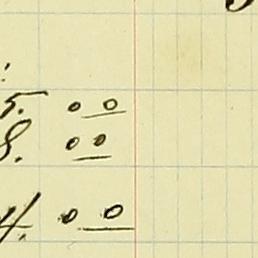 5. 00
8. 00
4. 00